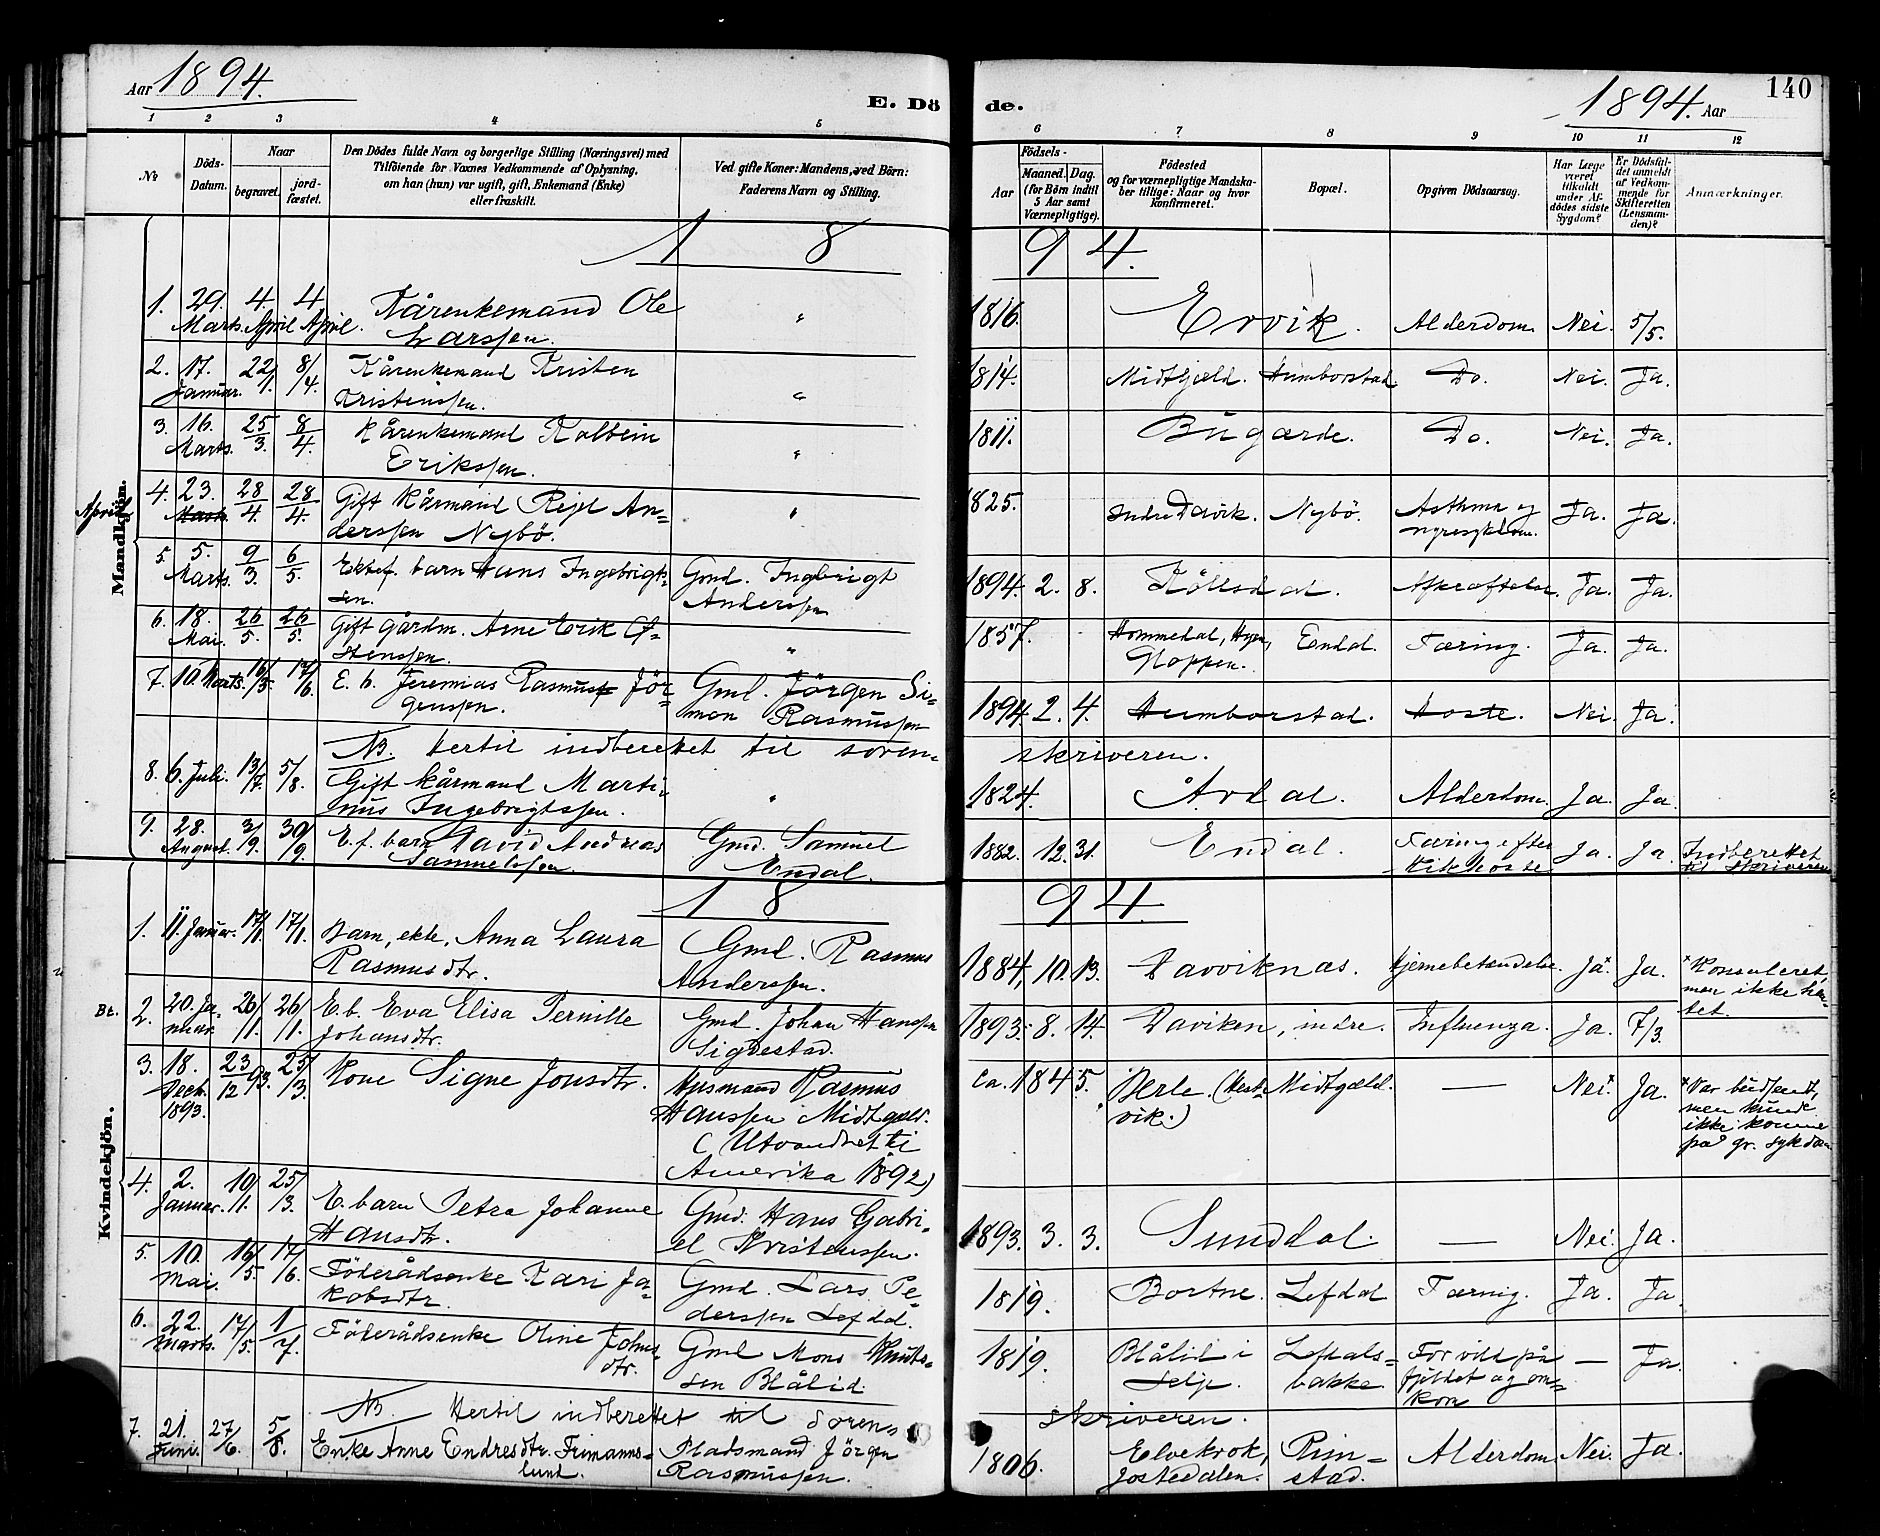 Aar 1894.
E. Dö
de.
1894. Aar
140
1 2 3 4 5
6 7 8 9 10 11 12
No
Döds-Datum.
Naar
begravet.
jord-fæstet.
Den Dödes fulde Navn og borgerlige Stilling (Næringsvei) med
Tilföiende for Voxnes Vedkommende af Oplysning,
om han (hun) var ugift, gift, Enkemand (Enke)
eller fraskilt.
Ved gifte Koner: Mandens, ved Börn:
Faderens Navn og Stilling.
Födsels-
Aar
Maaned. Dag.
(for Börn indtil
5 Aar samt
Værnepligtige).
Födested
og for værnepligtige Mandska-
ber tillige: Naar og hvor
konfirmeret.
Bopæl.
Opgiven Dödsaarsag.
Har Læge
været
tilkaldt
under Af-
dödes sidste
Sygdom?
Er Dödsfal-
det anmeldt
af Vedkom-
mende for
Skifteretten
(Lensman-
den)?
Anmærkninger.
Mandkjön.
1 8 9 4.
1. 29. Marts. 4. April 4 April. Kårenkemand Ole
Larssen. " 1816. Ervik. Alderdom Nei. 5/5.
2. 17. Januar. 22/1. 8/4. Kårenkemand Kristen
Kristenssen. " 1814. Midtgjæld. Humborstad Do. Nei. Ja.
3. 16. Marts. 25/3. 8/4. Kårenkemand Kolbein
Erikssen. " 1811. Bugærde. Do. Nei. Ja.
4. 23. Marts April 28/4. 28/4. Gift kårmand Rejel An-
derssen Nybö. " 1825. Indre Davik. Nybö. Asthma og
nyresykdom. Ja. Ja.
5. 5. Marts. 9/3. 6/5. Ektef. barn Hans Ingebrigt-
sen. Gmd. Ingbrigt
Anderssen 1894. 2. 8. Köllsdal. Afkræftelse. Ja. Ja.
6. 18. Mai. 26/5. 26/5. Gift gårdm. Arne Erik Ø-
stenssen. " 1857. Hommedal, Hyen,
Gloppen. Endal. Tæring. Ja. Ja.
7. 10. Marts. 16/5. 17/6. E. b. Jeremias Rasmuss Jör-
genssen. Gmd. Jörgen Si-
mon Rasmussen 1894. 2. 4. Humborstad. Hoste. Nei. Ja.
NB. Hertil indberettet til soren-
skriveren.
8. 6. Juli. 13/7. 5/8. Gift kårmand Marti-
nus Ingebrigtssen. " 1824. Årdal. Alderdom. Ja. Ja.
9. 28. August. 3/9. 30/9. E. f. barn David Andreas
Samuelssen. Gmd. Samuel
Endal. 1882. 12. 31. Endal. Tæring efter
kikhoste Ja. Ja. Indberettet
til skriveren
Kvindekjön.
1 8 9 4.
1. 11. Januar. 17/1. 17/1. Barn, ekte, Anna Laura
Rasmusdtr. Gmd. Rasmus
Anderssen. 1884, 10. 13. Davviknæs. Hjernebetændelse. Ja.x Ja. x Konsuleret,
men ikke hen-
tet.
Bt. 2. 20. Ja-
nuar. 26/1. 26/1. E. b. Eva Elisa Pernille
Johansdtr. Gmd. Johan Hanssen
Sigdestad. 1893. 8. 14. Daviken, indre. Influenza. Ja. 7/3.
3. 18. Decb. 1893. 23/12 93. 25/3. Kone Signe Jonsdtr. Husmand Rasmus
Hanssen Midtgæld.
(Utvandret ti
Amerika 1892) ca. 1845. Berle. (Hest-
vik.) Midtgæld. — Nei.x Ja. x Var budsendt,
men kunde
ikke komme
på gr. sykdom
4. 2. Januar. 10/1. 25/3. E. barn Petra Johanne
Hansdtr. Gmd. Hans Gabri-
el Kristenssen. 1893. 3. 3. Sunddal. — Nei. Ja.
5. 10. Mai. 16/5. 17/6. Föderådsenke Kari Ja-
kobsdtr. Gmd. Lars Pe-
derssen Lefdal. 1819. Bortne. Lefdal Tæring. Ja. Ja.
6. 22. Marts. 17/5. 1/7. Föderådsenke Oline Johns-
dtr. Gmd Mons Knuts-
sen Blålid. 1819. Blålid i
Selje. Lefdals-
bakke. For vild på
fjeldet og om-
kom — Ja.
NB. Hertil indberettet til soren-
skriveren.
7. 21. Juni. 27/6. 5/8. Enke Anne Endresdtr. Frimanns-
lund. Pladsmand Jörgen
Rasmussen. 1806. Elvekrok,
Jostedalen. Rim-
stad. Alderdom Nei. Ja.